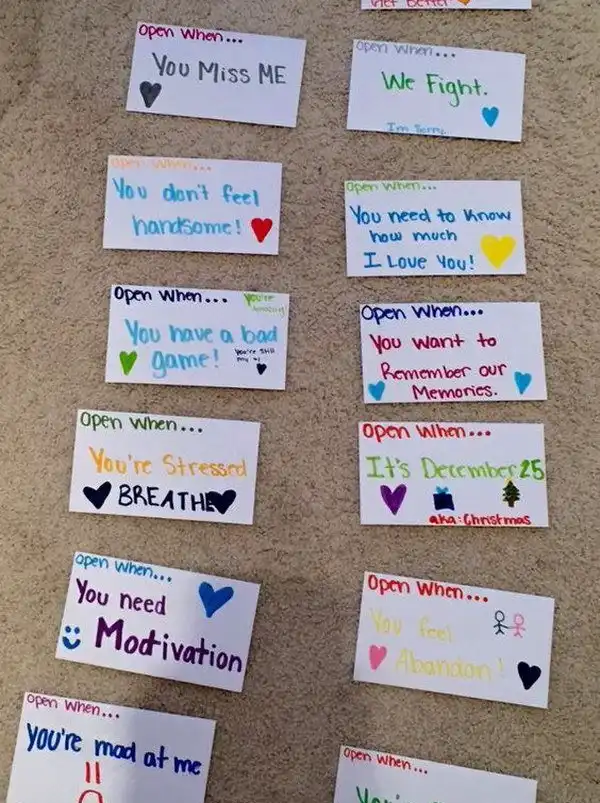 Get Better
Open When...
You Miss ME
Open When...
We Fight.
I'm Sorry
Open When...
You don't feel
handsome!
Open When...
You need to know
how much
I Love You!
Open When...
You're
Amazing
You have a bad
game!
You're still
my #1
Open When...
You want to
Remember our
Memories.
Open When...
You're Stressed
BREATHE
Open When...
It's December 25
aka: Christmas
Open When...
You need
Motivation
Open When...
You feel
Abandon!
Open When...
You're mad at me
Open When...